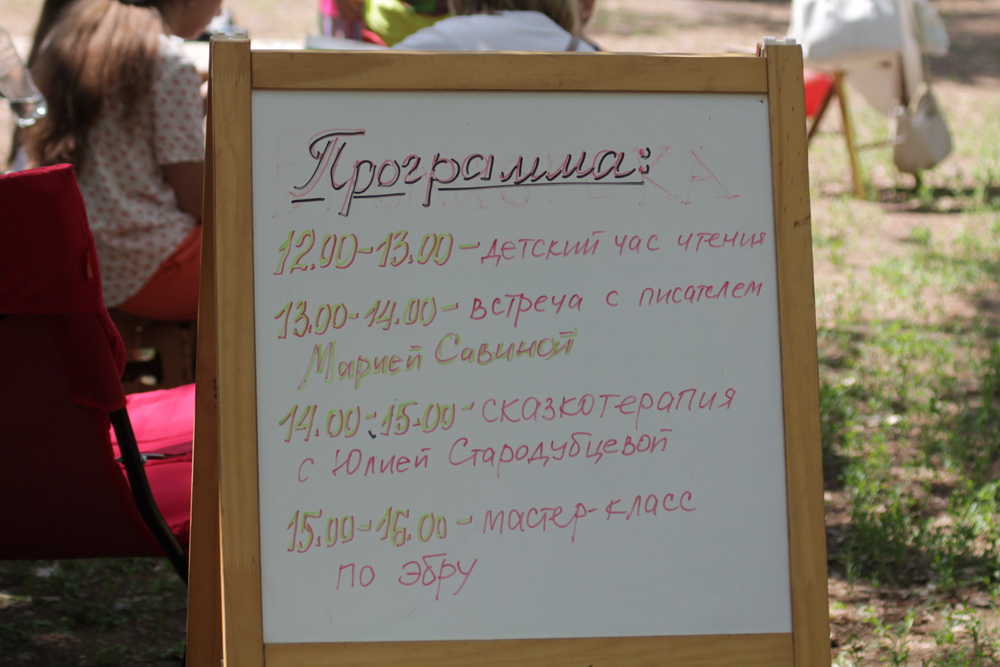 Программа:
12.00-13.00-детский час чтения
13.00-14.00-встреча с писателем
Марией Савиной
14.00-15.00-сказкотерапия
с Юлией Стародубцевой
15.00-16.00-мастер-класс
по эбру